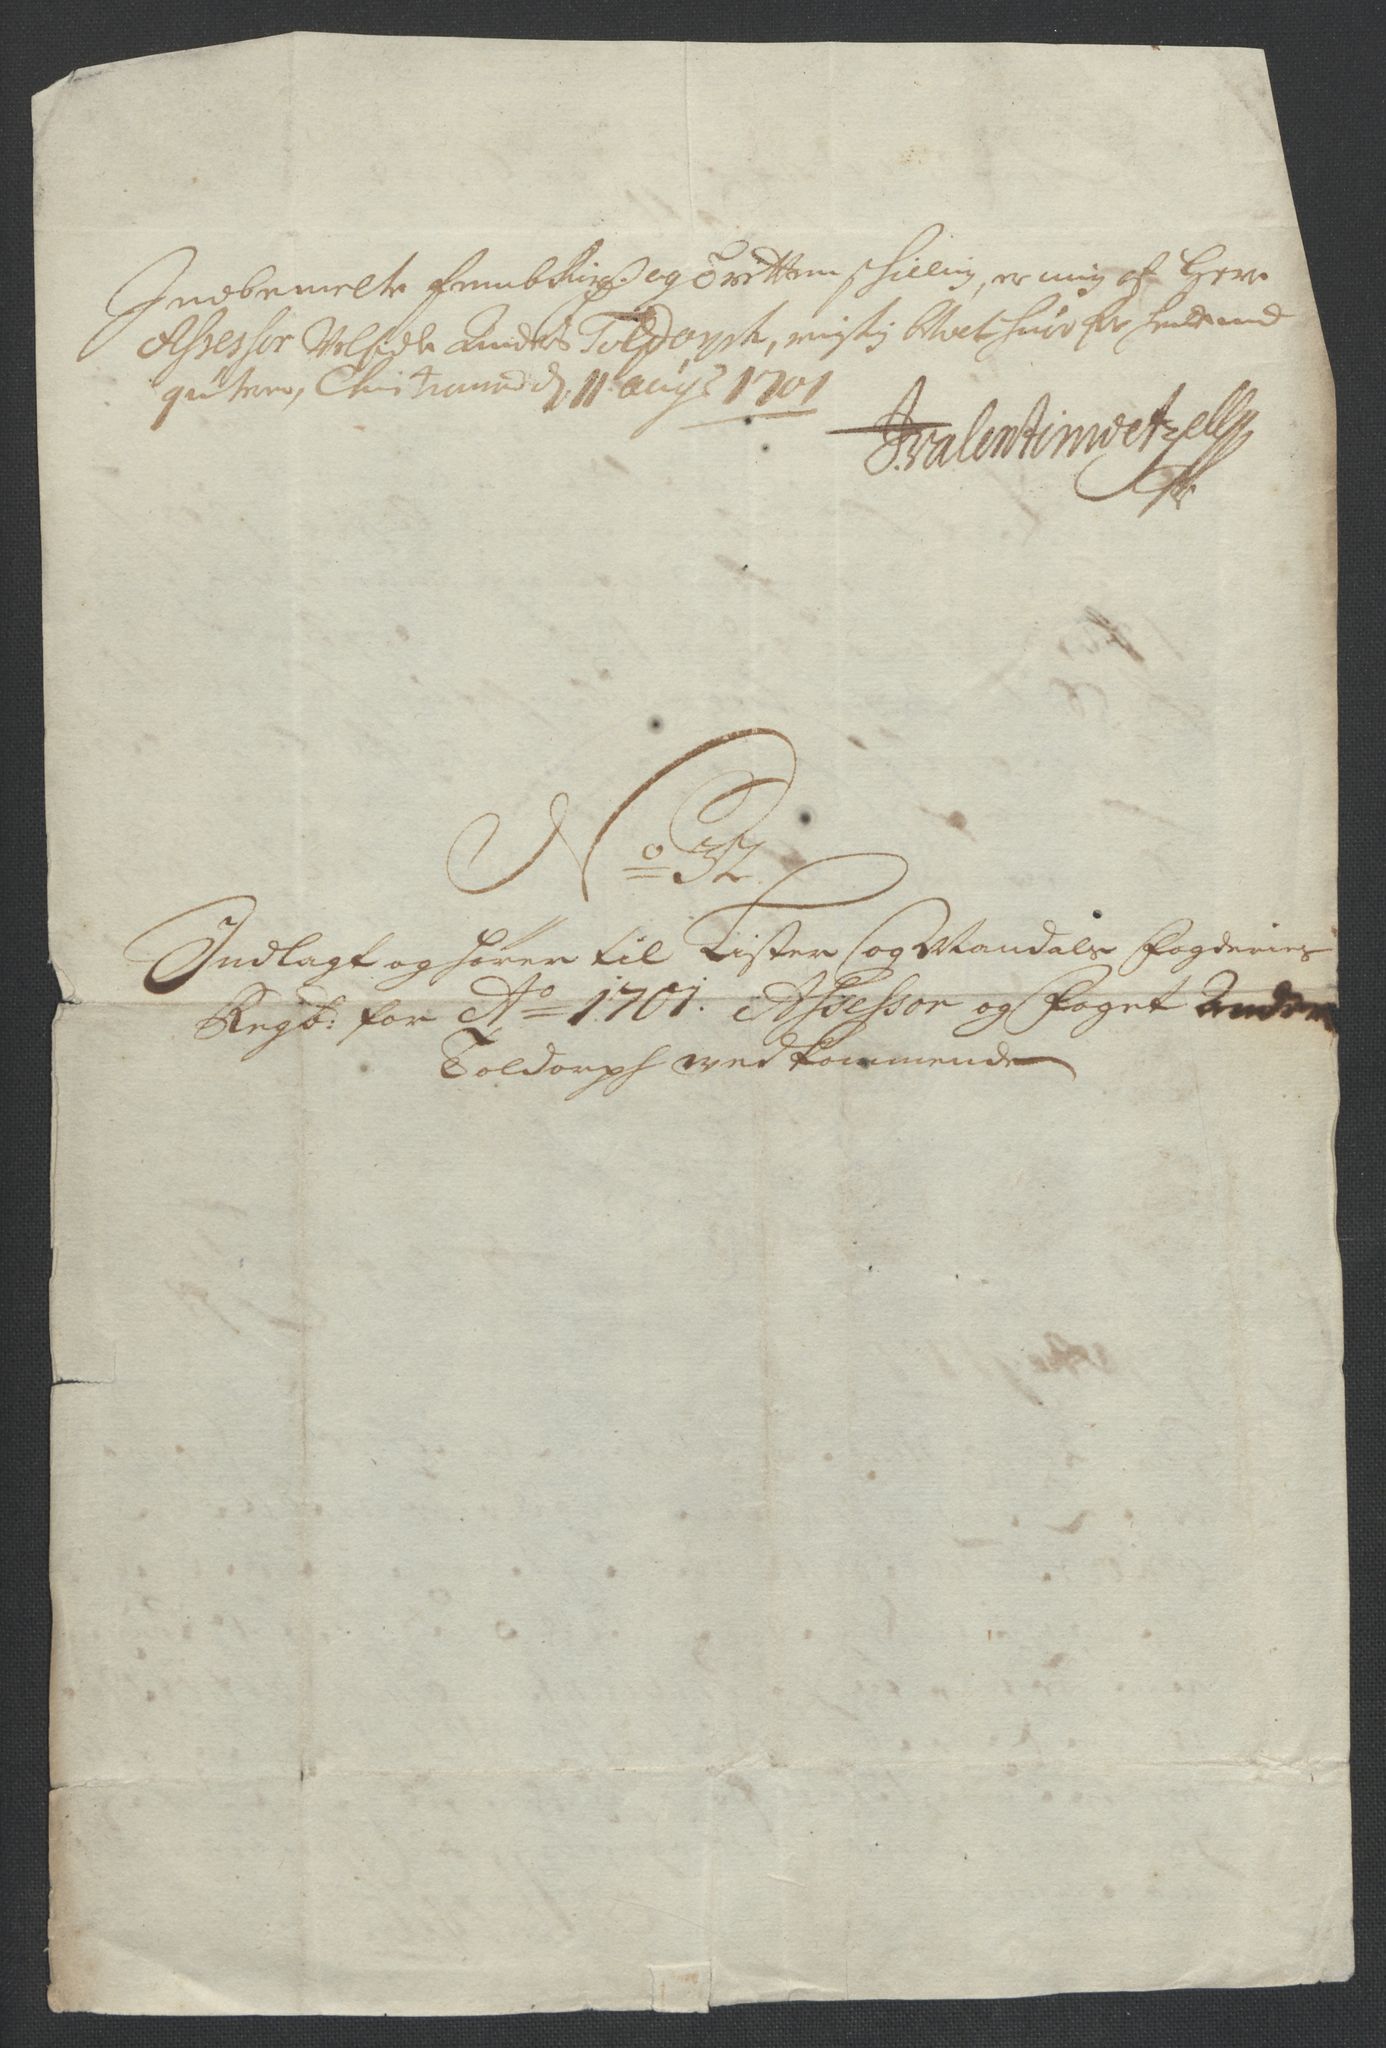 Indbemelte femb og Tretten schilling, er mig af Herr
Assessor Velædle Anders Toldorph, rigtig blvet for hand med
quiteres, Christiansand d. 11 augs 1701
J. valentin wetzell
No 32.
Indlagt og hörer til Lister og Mandals Fogderies
Regsb: for Ao 1701. Assessor og Foget Anders
Toldorph vedkommende